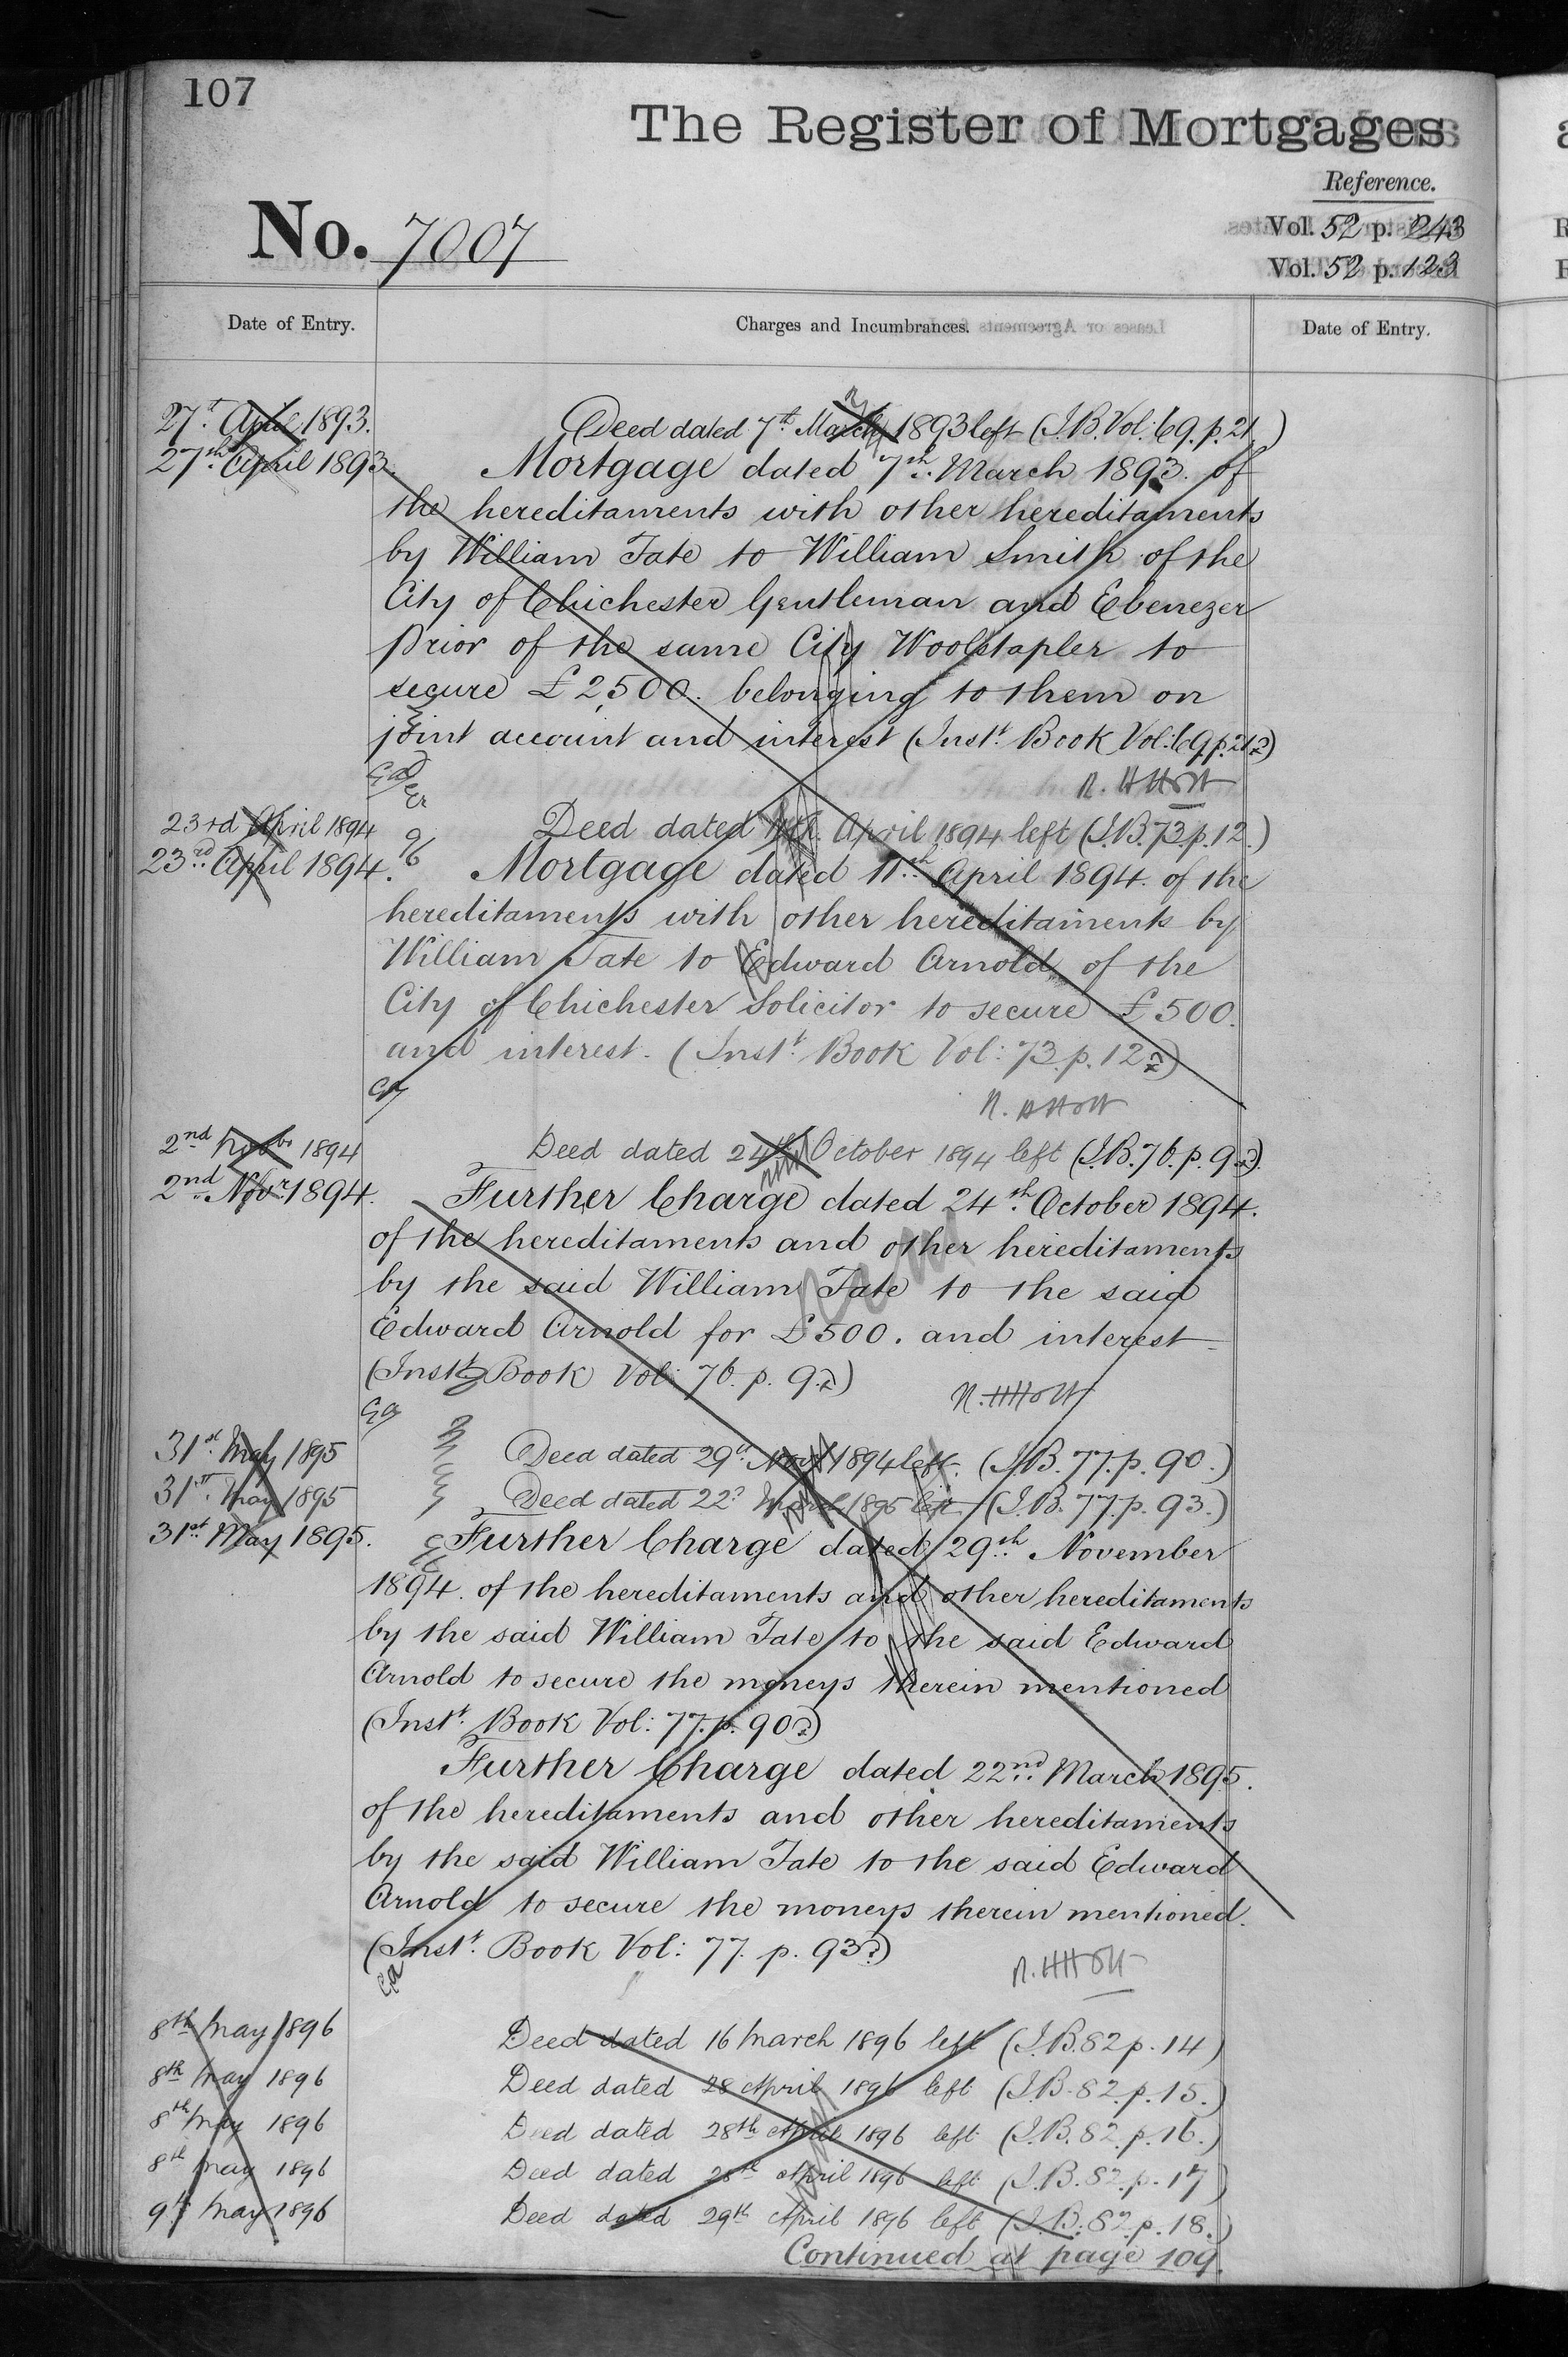 107
The Register of Mortgages
Reference.
No. 7007
Vol. 52 p. 243
Vol. 52 p. 123
Date of Entry. Charges and Incumbrances. Date of Entry.
27th April 1893. Deed dated 7th March 1893 left (I.B. Vol: 69. p. 21)
27th April 1893. Mortgage dated 7th March 1893. of
the hereditaments with other hereditaments
by William Tate to William Smith of the
City of Chichester Gentleman and Ebenezer
Prior of the same City Woolstapler to
secure £2500. belonging to them on
joint account and interest (Inst. Book Vol: 69. p. 21)
23rd April 1894 Deed dated 11th April 1894 left (I.B. 73. p. 12.)
23rd April 1894. Mortgage dated 11th April 1894. of the
hereditaments with other hereditaments by
William Tate to Edward Arnold of the
City of Chichester Solicitor to secure £500.
and interest. (Inst. Book Vol: 73. p. 12)
2nd Novbr 1894 Deed dated 24th October 1894 left (I.B. 76. p. 9).
2nd Novr. 1894. Further Charge dated 24th October 1894.
of the hereditaments and other hereditaments
by the said William Tate to the said
Edward Arnold for £500. and interest
(Inst. Book Vol: 76. p. 9)
31st May 1895 Deed dated 29th Novr 1894 left. (I.B. 77. p. 90.)
31st May 1895 Deed dated 22d March 1895 left (I.B. 77. p. 93.)
31st May 1895. Further Charge dated 29th November
1894. of the hereditaments and other hereditaments
by the said William Tate to the said Edward
Arnold to secure the moneys therein mentioned
(Inst. Book Vol: 77. p. 90)
Further Charge dated 22nd March 1895.
of the hereditaments and other hereditaments
by the said William Tate to the said Edward
Arnold to secure the moneys therein mentioned.
(Inst. Book Vol: 77. p. 93)
8th May 1896 Deed dated 16 March 1896 left (I.B. 82 p. 14)
8th May 1896 Deed dated 28 April 1896 left (I.B. 82. p. 15.)
8th May 1896 Deed dated 28th April 1896 left (I.B. 82. p. 16.)
8th May 1896 Deed dated 28th April 1896 left (I.B. 82. p. 17)
9th May 1896 Deed dated 29th April 1896 left (I.B. 82. p. 18.)
Continued at page 109.